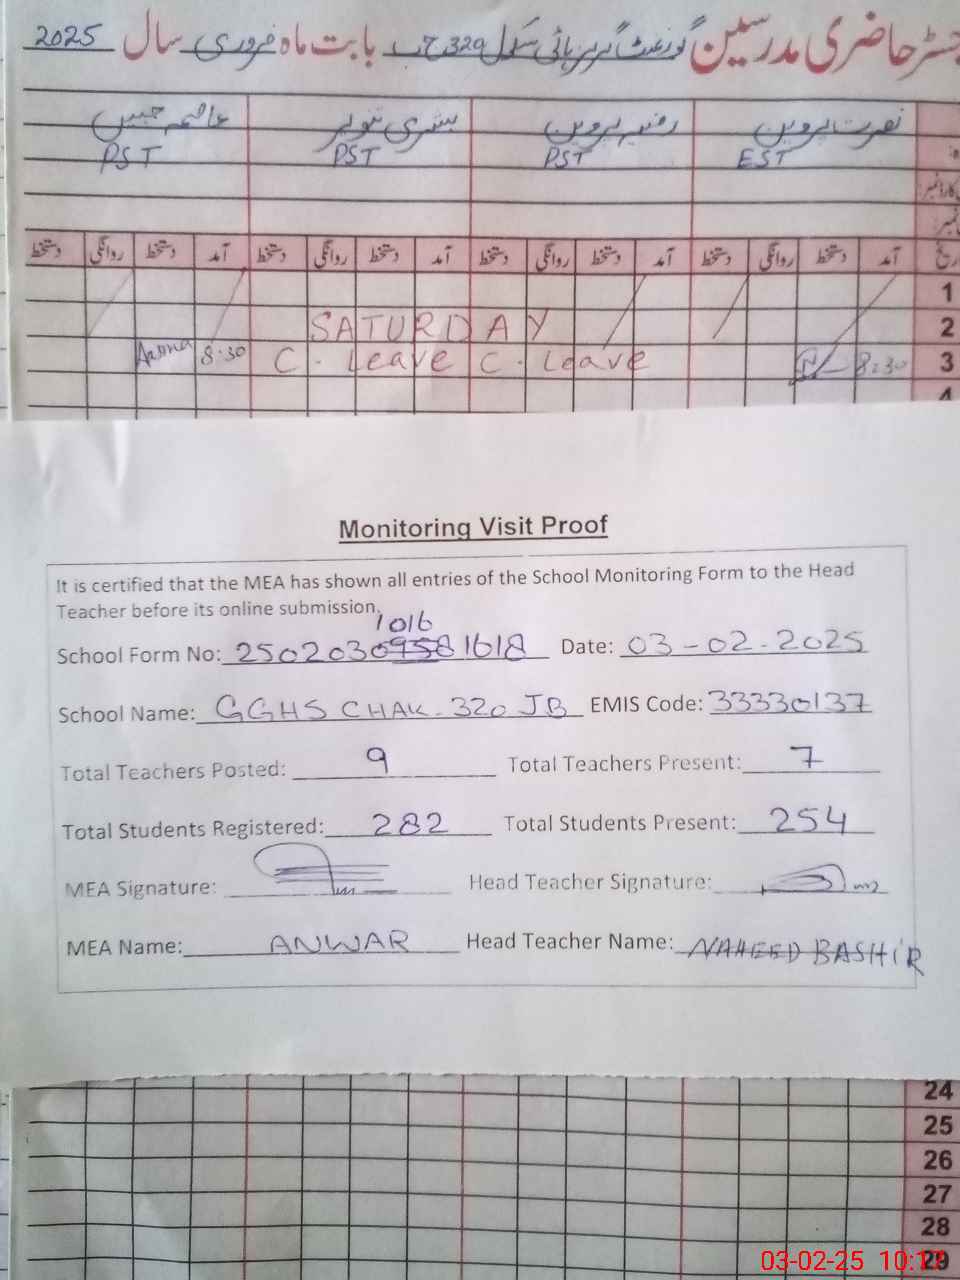 جسٹر حاضری مدرسین گورنمنٹ گرلز ہائی سکول 320 ج ب بابت ماہ فروری سال 2025
نصرت پروین رضیہ پروین بشری تنویر عاصمہ حبیب
EST PST PST PST
آمد دستخط روانگی دستخط آمد دستخط روانگی دستخط آمد دستخط روانگی دستخط آمد دستخط روانگی دستخط
1
SATURDAY 2
Asma 8:30 C. Leave C. Leave 8:30 3
4
Monitoring Visit Proof
It is certified that the MEA has shown all entries of the School Monitoring Form to the Head
Teacher before its online submission.
1016
School Form No: 2502030 1618 Date: 03-02-2025
School Name: GGHS CHAK-320 JB EMIS Code: 33330137
Total Teachers Posted: 9 Total Teachers Present: 7
Total Students Registered: 282 Total Students Present: 254
MEA Signature: Head Teacher Signature:
MEA Name: ANWAR Head Teacher Name: NAHEED BASHIR
24
25
26
27
28
29
03-02-25